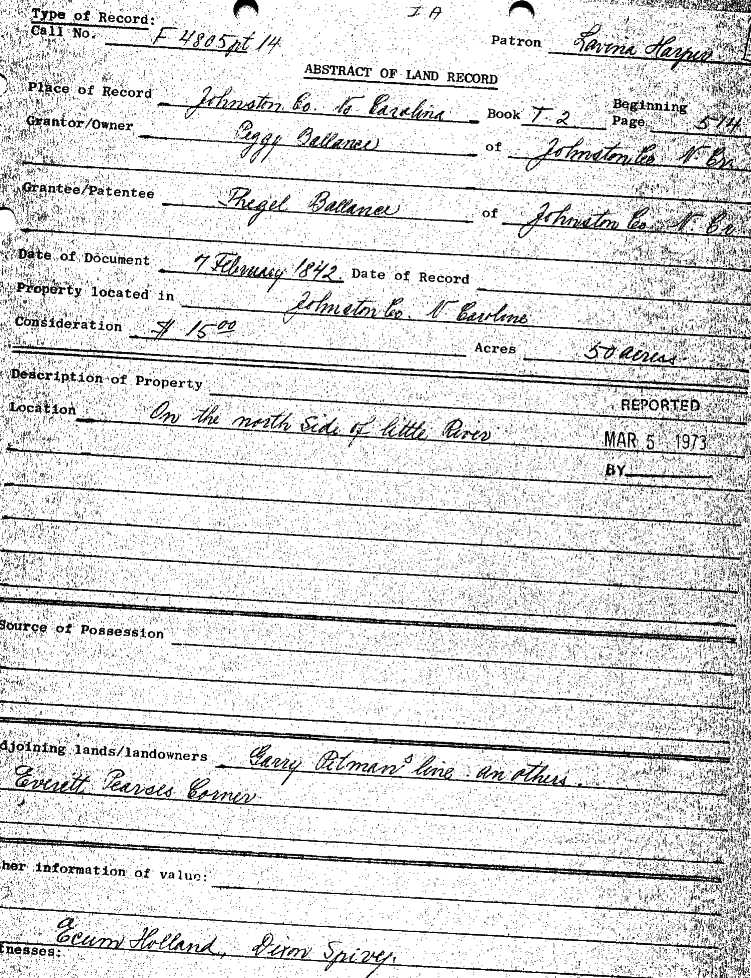 I A
Type of Record:
Call No. F 4805 pt 14 Patron Lavina Harper
ABSTRACT OF LAND RECORD
Place of Record Johnston Co. to Carolina Book T-2 Beginning Page 514
Grantor/Owner Peggy Ballance of Johnston Co. N. Ca
Grantee/Patentee Thegel Ballance of Johnston Co. N. Ca
Date of Document 7 February 1842. Date of Record
Property located in Johnston Co. N Caroline
Consideration $ 15 00 Acres 50 acres
Description of Property
REPORTED
Location On the north Side of little River
MAR 5 1973
BY
Source of Possession
djoining lands/landowners Garry Pitman's line an others.
Everett Pearses Corner
her information of value:
tnesses: Ecum Holland, Dixon Spivey.